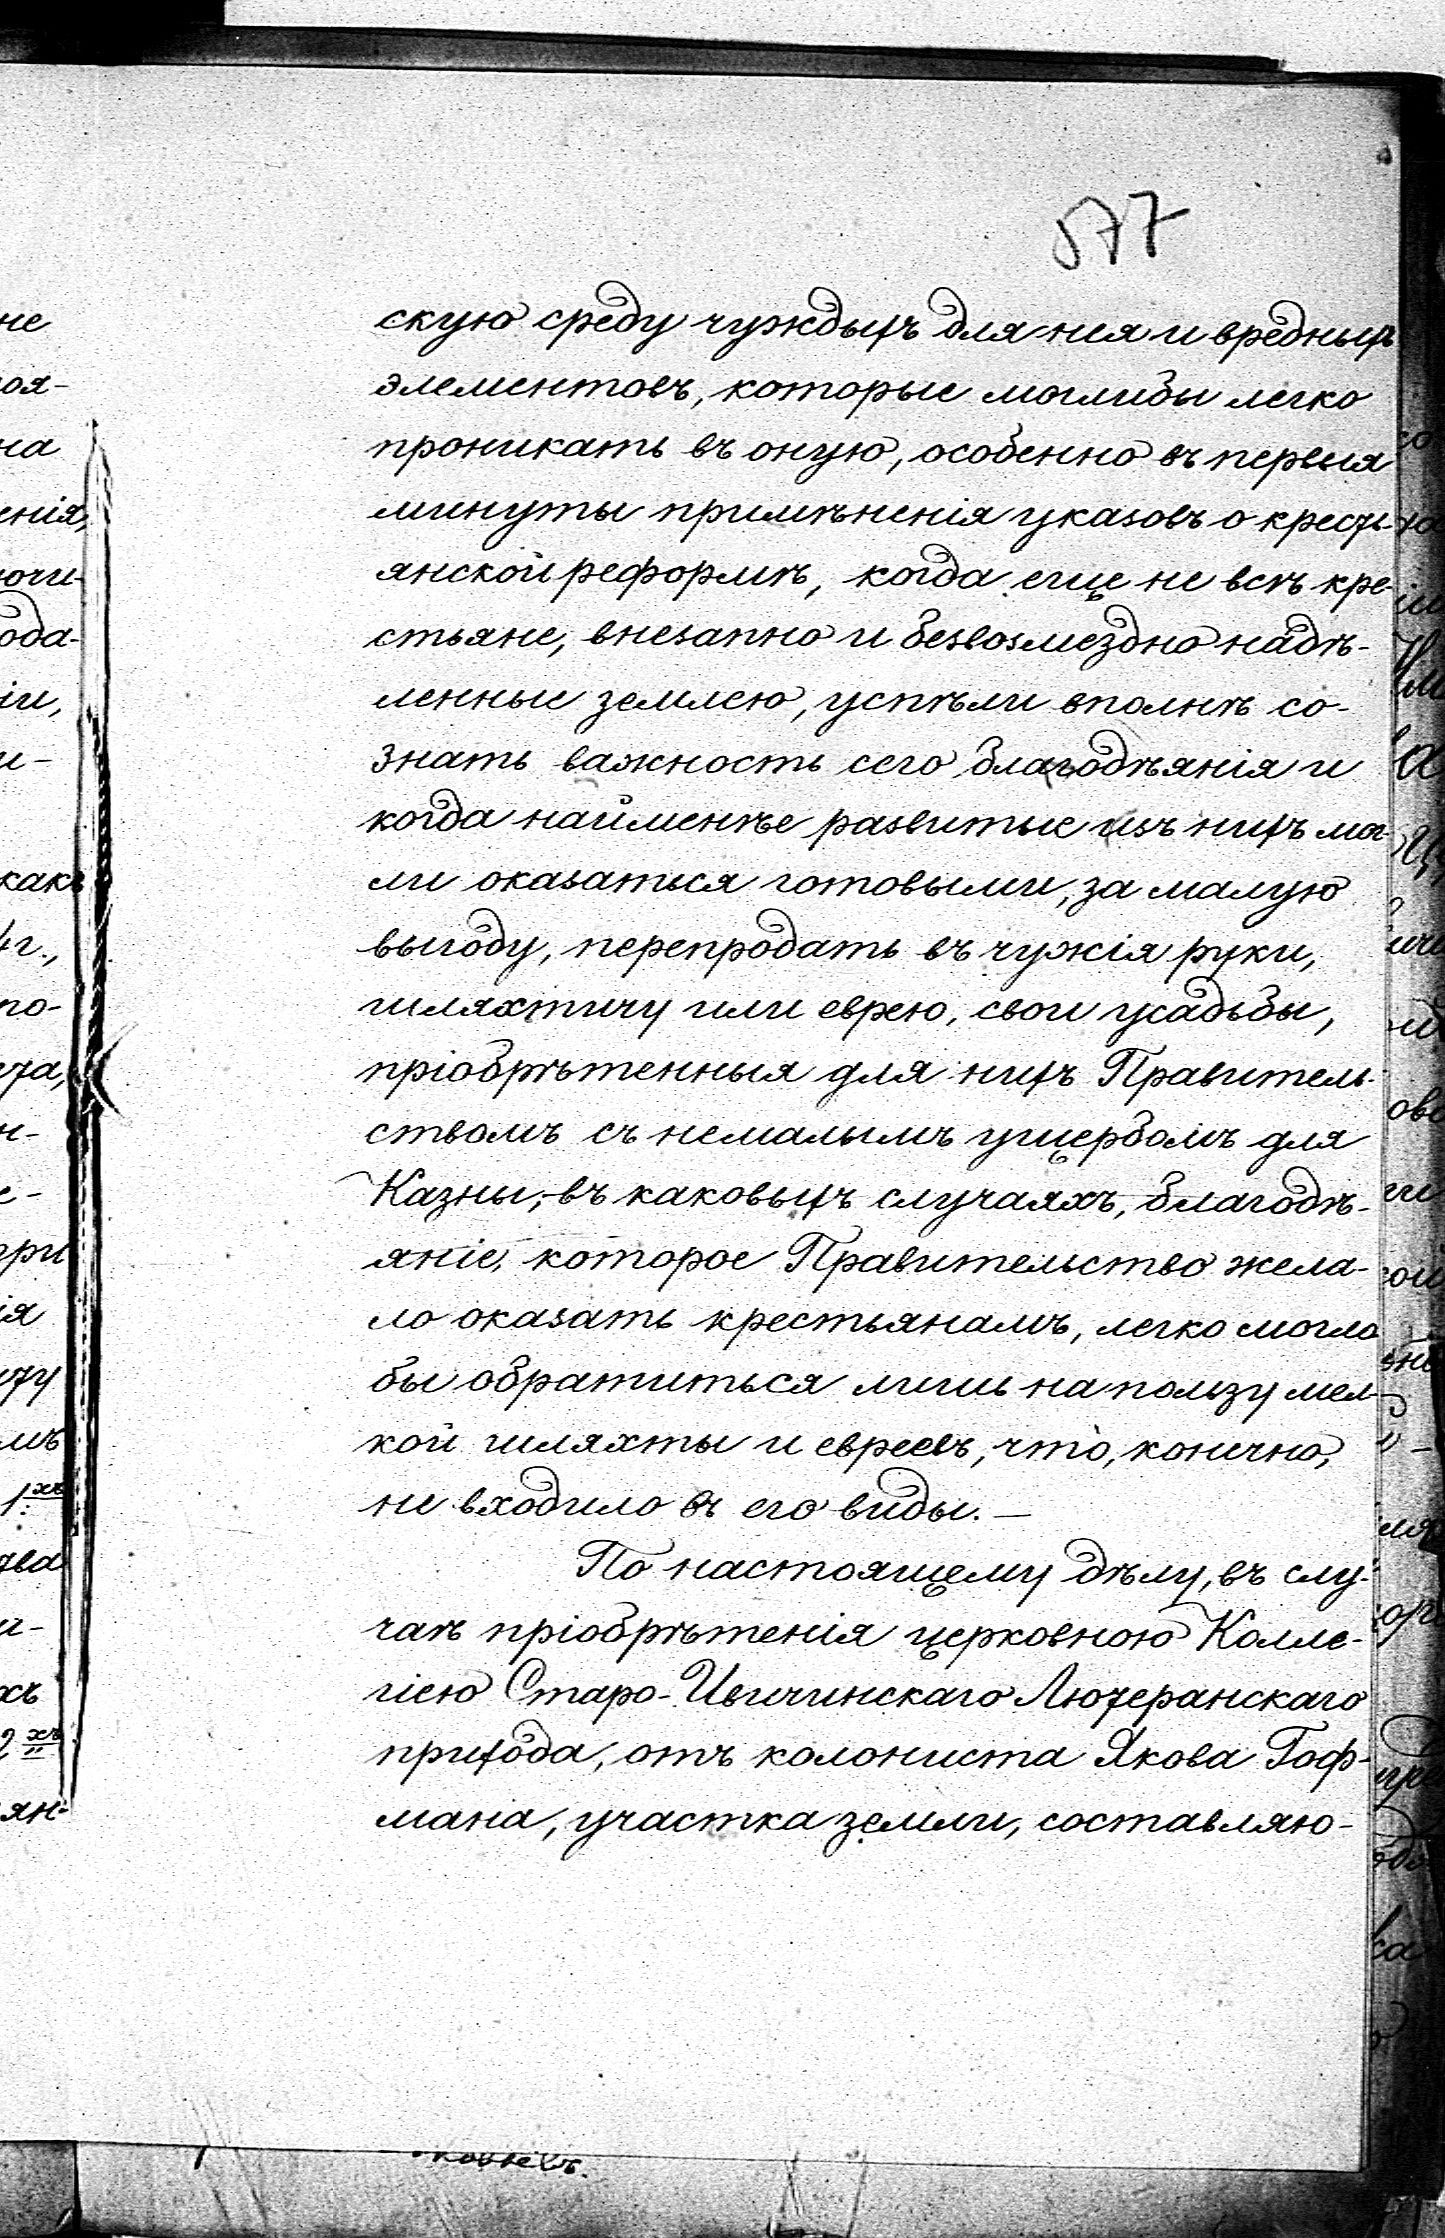 577
скую среду чуждыхъ для нея и вредныхъ
элементовъ, которые моглибы легко
проникать въ оную, особенно въ первыя
минуты примѣненія указовъ о кресть-
янской реформѣ, когда еще не всѣ кре-
стьяне, внезапно и безвозмездно надѣ-
ленные землею, успѣли вполнѣ со-
знать важность сего благодѣянія и
когда наименѣе развитые изъ нихъ мог-
ли оказаться готовыми, за малую
выгоду, перепродать въ чужія руки,
шляхтичу или еврею, свои усадьбы,
пріобрѣтенныя для нихъ Правитель-
ствомъ съ немалымъ ущербомъ для
Казны,-въ каковыхъ случаяхъ, благодѣ-
яніе, которое Правительство жела-
ло оказать крестьянамъ, легко могло
бы обратиться лишь на пользу мел-
кой шляхты и евреевъ, что, конечно,
не входило въ его виды.—
По настоящему дѣлу, въ слу-
чаѣ пріобрѣтенія церковною Колле-
гіею Старо-Ивичинскаго Лютеранскаго
прихода, отъ колониста Якова Гоф-
мана, участка земли, составляю-